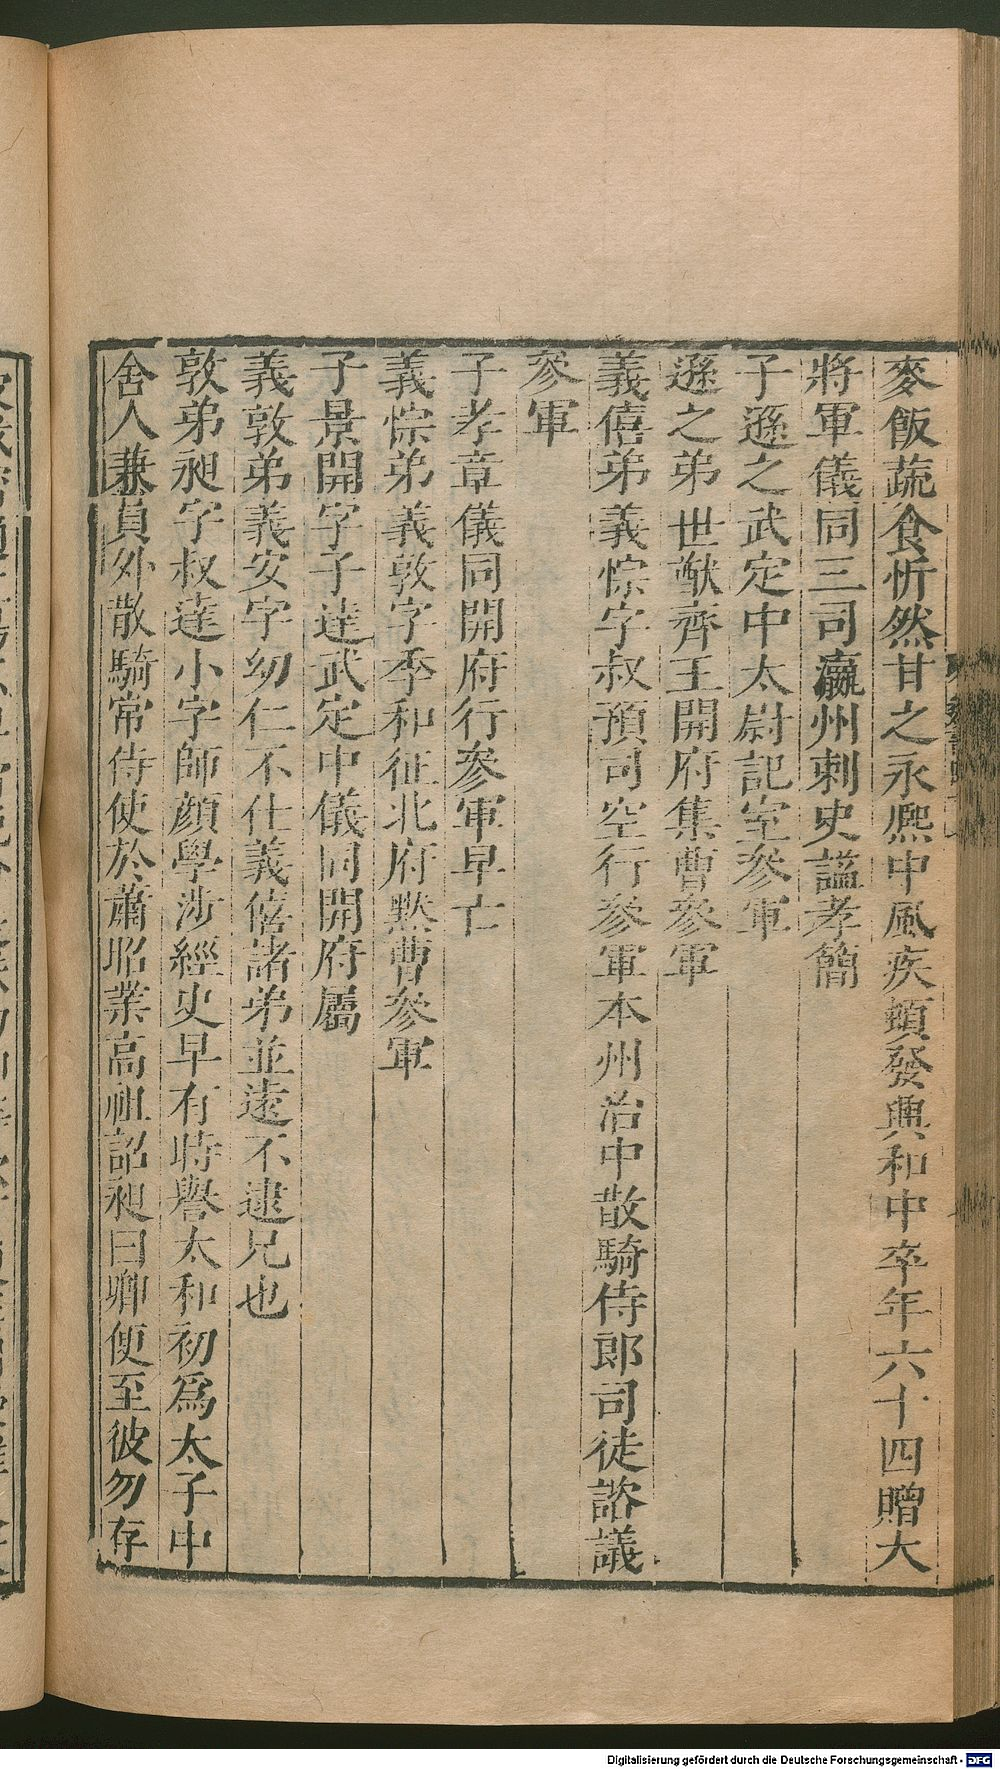 麥飯蔬食忻然甘之永熙中風疾頓發興和中卒年六十四贈大
將軍儀同三司瀛州刺史謚孝簡
子遜之武定中太尉記室參軍
遜之弟世猷齊王開府集曹參軍
義僖弟義悰字叔預司空行參軍本州治中散騎侍郎司徒諮議
參軍
子孝章儀同開府行參軍早亡
義悰弟義敦字季和征北府默曹參軍
子景開字子達武定中儀同開府屬
義敦弟義安字幼仁不仕義僖諸弟並遠不逮兄也
敦弟昶字叔達小字師顏學涉經史早有時譽太和初爲太子中
舍人兼員外散騎常侍使於蕭昭業高祖詔昶曰卿便至彼勿存
Digitalisierung gefördert durch die Deutsche Forschungsgemeinschaft - DFG